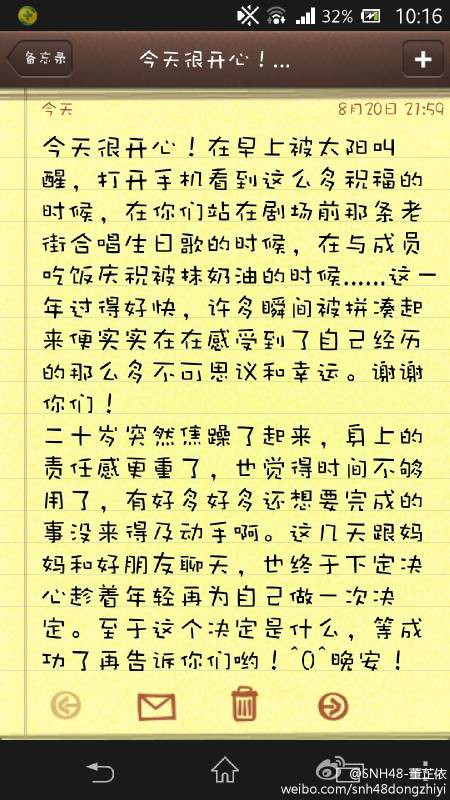 32% 10:16
备忘录 今天很开心！... +
今天 8月20日 21:59
今天很开心！在早上被太阳叫
醒，打开手机看到这么多祝福的
时候，在你们站在剧场前那条老
街合唱生日歌的时候，在与成员
吃饭庆祝被抹奶油的时候……这一
年过得好快，许多瞬间被拼凑起
来便实实在在感受到了自己经历
的那么多不可思议和幸运。谢谢
你们！
二十岁突然焦躁了起来，身上的
责任感更重了，也觉得时间不够
用了，有好多好多还想要完成的
事没来得及动手啊。这几天跟妈
妈和好朋友聊天，也终于下定决
心趁着年轻再为自己做一次决
定。至于这个决定是什么，等成
功了再告诉你们哟！^0^晚安！
@SNH48-董芷依
weibo.com/snh48dongzhiyi